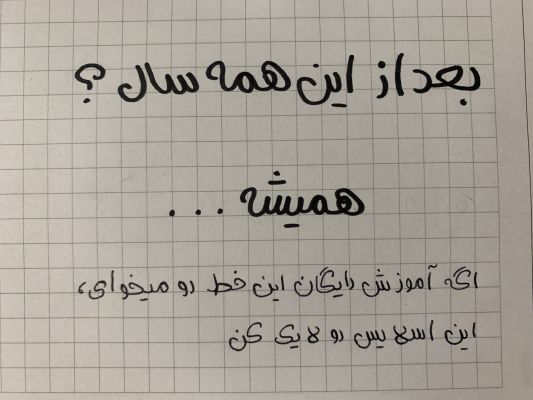 بعد از این همه سال ؟
همیشه ...
اگه آموزش رایگان این خط رو میخوای،
این اسلایس رو لایک کن